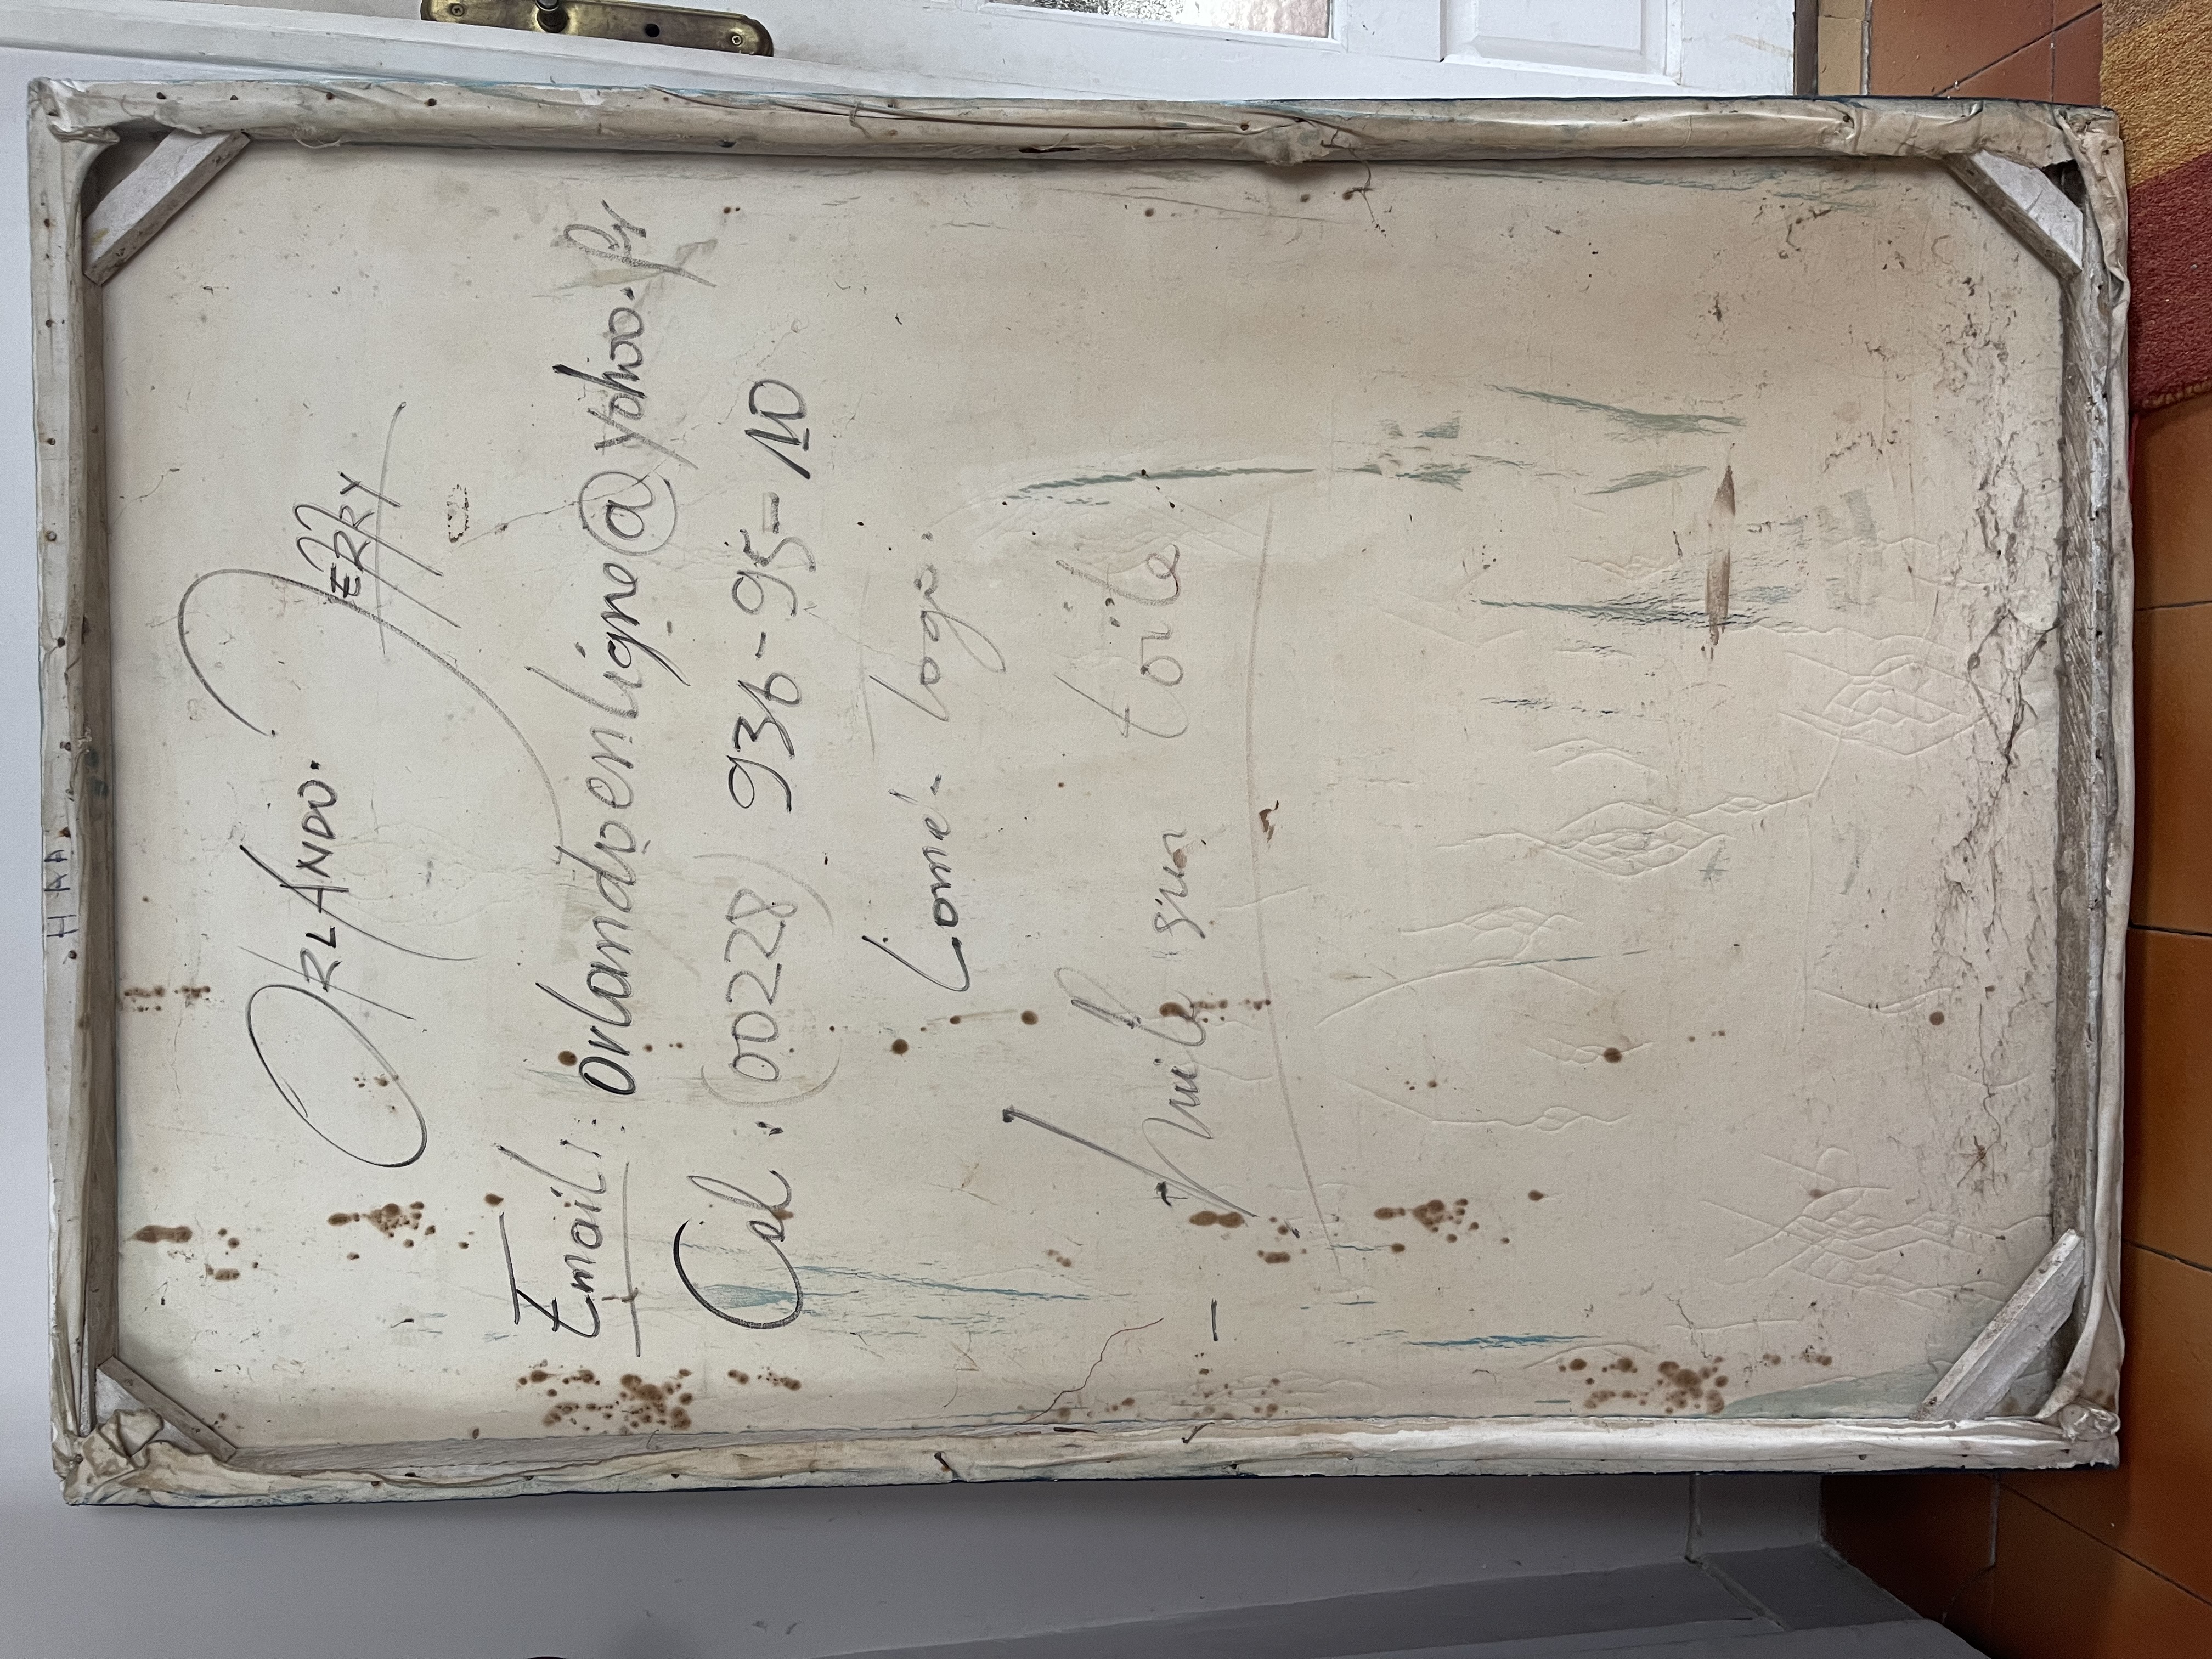 ORLANDO. JERRY
Email: orlandoenligne@yahoo.fr
Cel: (00228) 936-95-10
Lomé- Togo.
- Huile sur toile
HAA